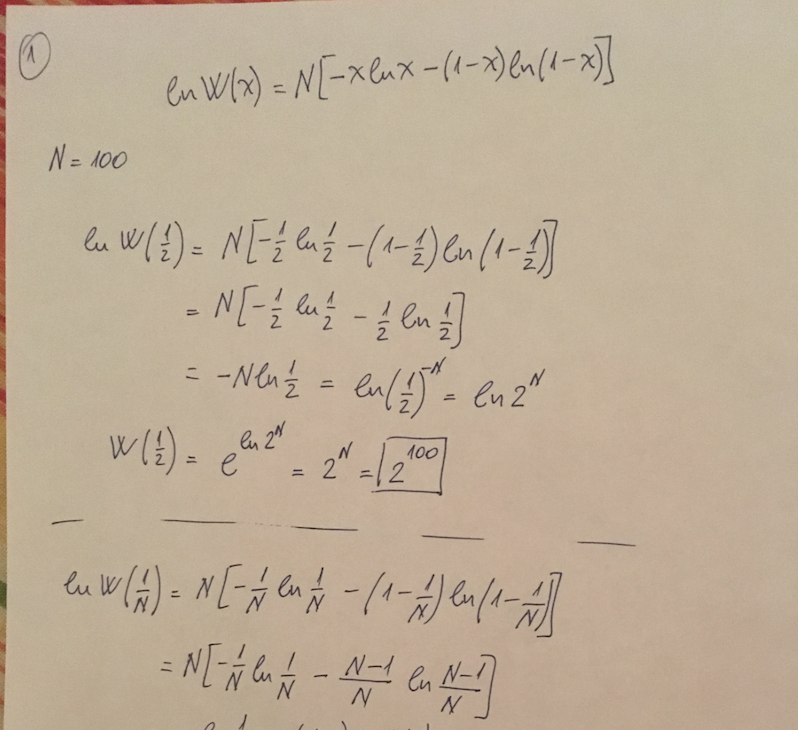 1
ln W(x) = N[-x ln x - (1-x) ln(1-x)]
N = 100
ln W(1/2) = N[-1/2 ln 1/2 - (1 - 1/2) ln(1 - 1/2)]
= N[-1/2 ln 1/2 - 1/2 ln 1/2]
= -N ln 1/2 = ln(1/2)^-N = ln 2^N
W(1/2) = e^ln 2^N = 2^N = 2^100
ln W(1/N) = N[-1/N ln 1/N - (1 - 1/N) ln(1 - 1/N)]
= N[-1/N ln 1/N - N-1/N ln N-1/N]